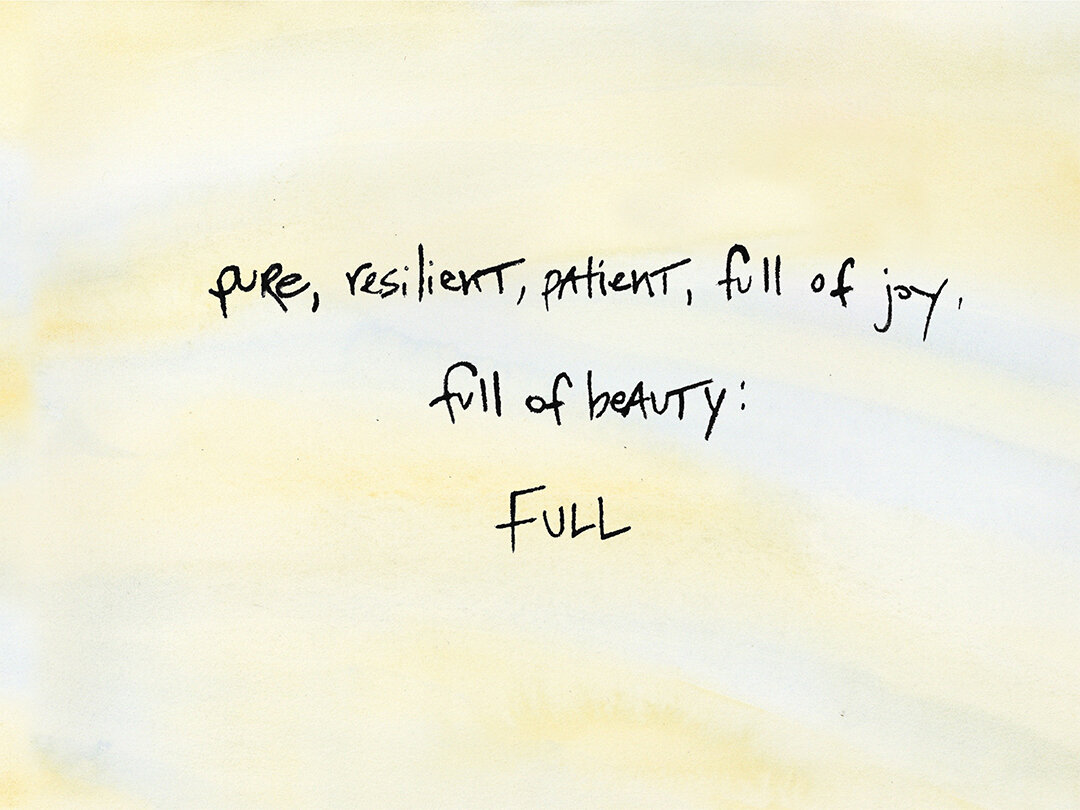 pure, resilient, patient, full of joy,
full of beauty:
FULL